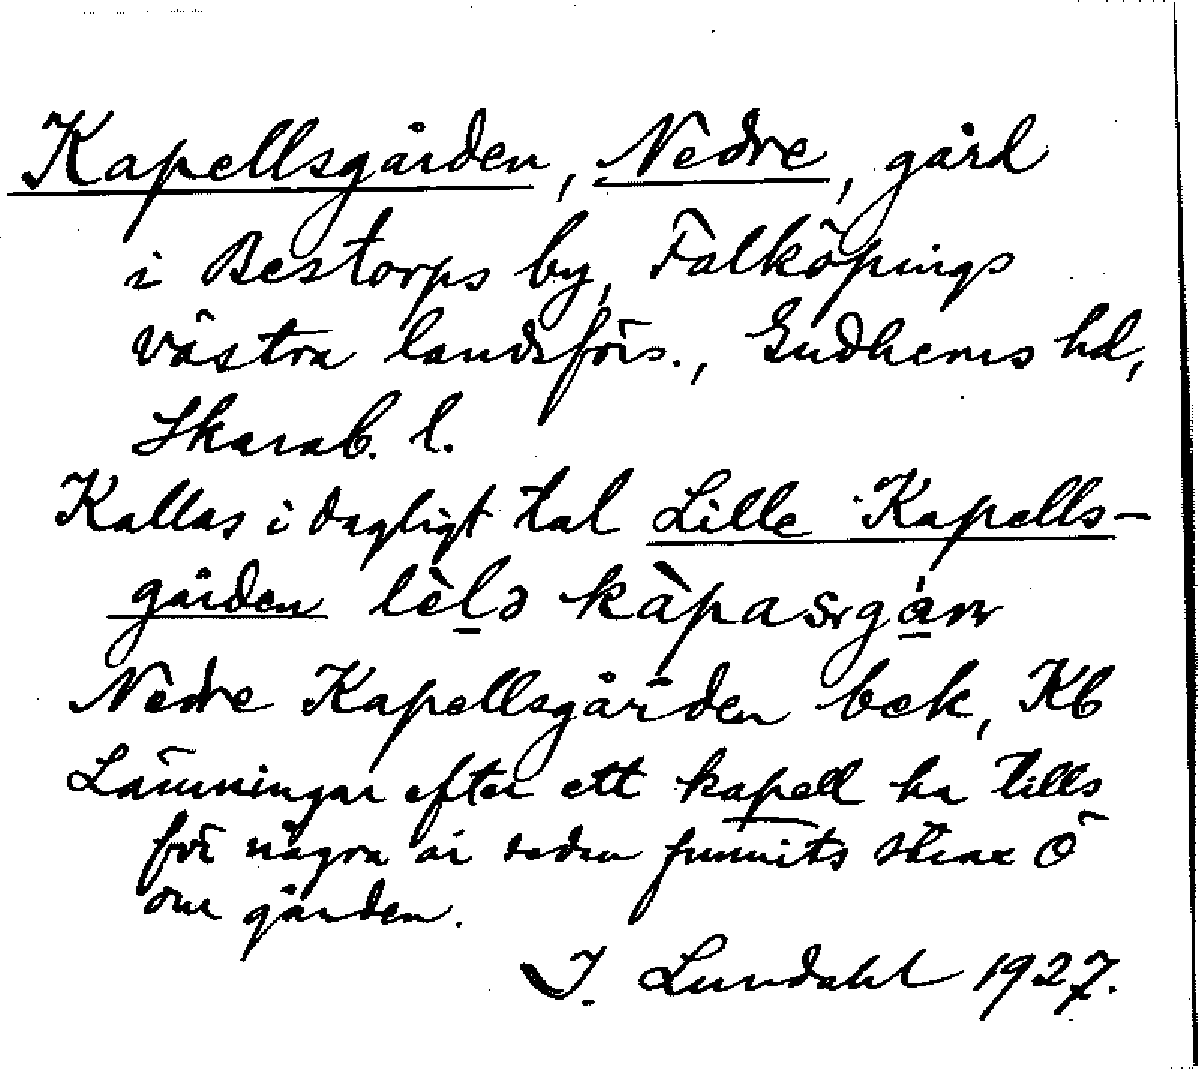 Kapellsgården, Nedre, gård
i Bestorps by, Falköpings
västra landsförs., Gudhems hd,
Skarab. l.
Kallas i dagligt tal Lille Kapells-
gården
Nedre Kapellsgården bek, Kb
Lämningar efter ett kapell ha tills
för några år sedan funnits strax Ö
om gården.
I. Lundahl 1927.